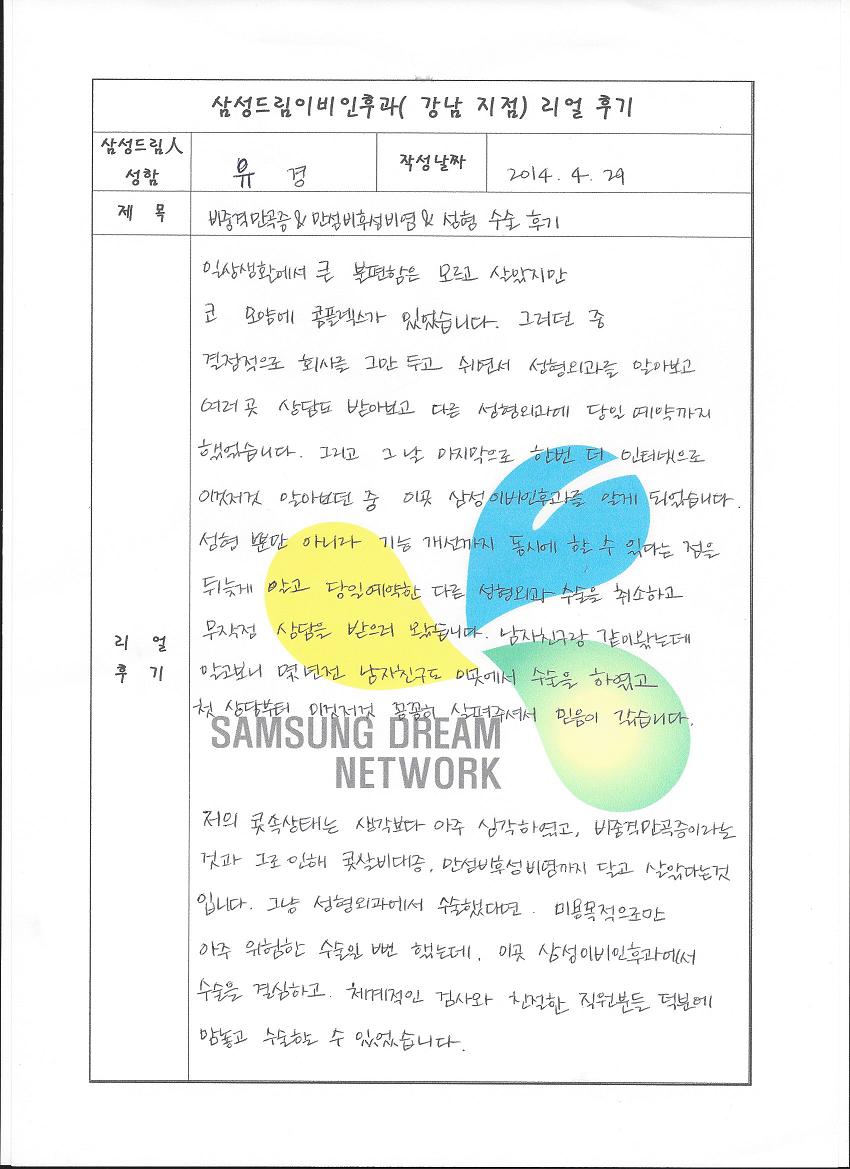 삼성드림이비인후과( 강남 지점) 리얼 후기
삼성드림人 성함
유 경
작성날짜
2014. 4. 29
제 목
비중격만곡증 & 만성비후성비염 & 성형 수술 후기
리 얼
후 기
일상생활에서 큰 불편함은 모르고 살았지만
코 모양에 콤플렉스가 있었습니다. 그러던 중
결정적으로 회사를 그만 두고 쉬면서 성형외과를 알아보고
여러곳 상담도 받아보고 다른 성형외과에 당일 예약까지
했었습니다. 그리고 그날 마지막으로 한번 더 인터넷으로
이것저것 알아보던 중 이곳 삼성이비인후과를 알게 되었습니다.
성형 뿐만 아니라 기능 개선까지 동시에 할 수 있다는 점을
뒤늦게 알고 당일예약한 다른 성형외과 수술을 취소하고
무작정 상담을 받으러 왔습니다. 남자친구랑 같이왔는데
알고보니 몇년전 남자친구도 이곳에서 수술을 하였고
첫 상담부터 이것저것 꼼꼼히 살펴주셔서 믿음이 갔습니다.
SAMSUNG DREAM
NETWORK
저의 콧속상태는 생각보다 아주 심각하였고, 비중격만곡증이라는
것과 그로인해 콧살비대증, 만성비후성비염까지 달고 살았다는것
입니다. 그냥 성형외과에서 수술했다면 미용목적으로만
아주 위험한 수술일 뻔 했는데, 이곳 삼성이비인후과에서
수술을 결심하고 체계적인 검사와 친절한 직원분들 덕분에
맘놓고 수술할 수 있었습니다.